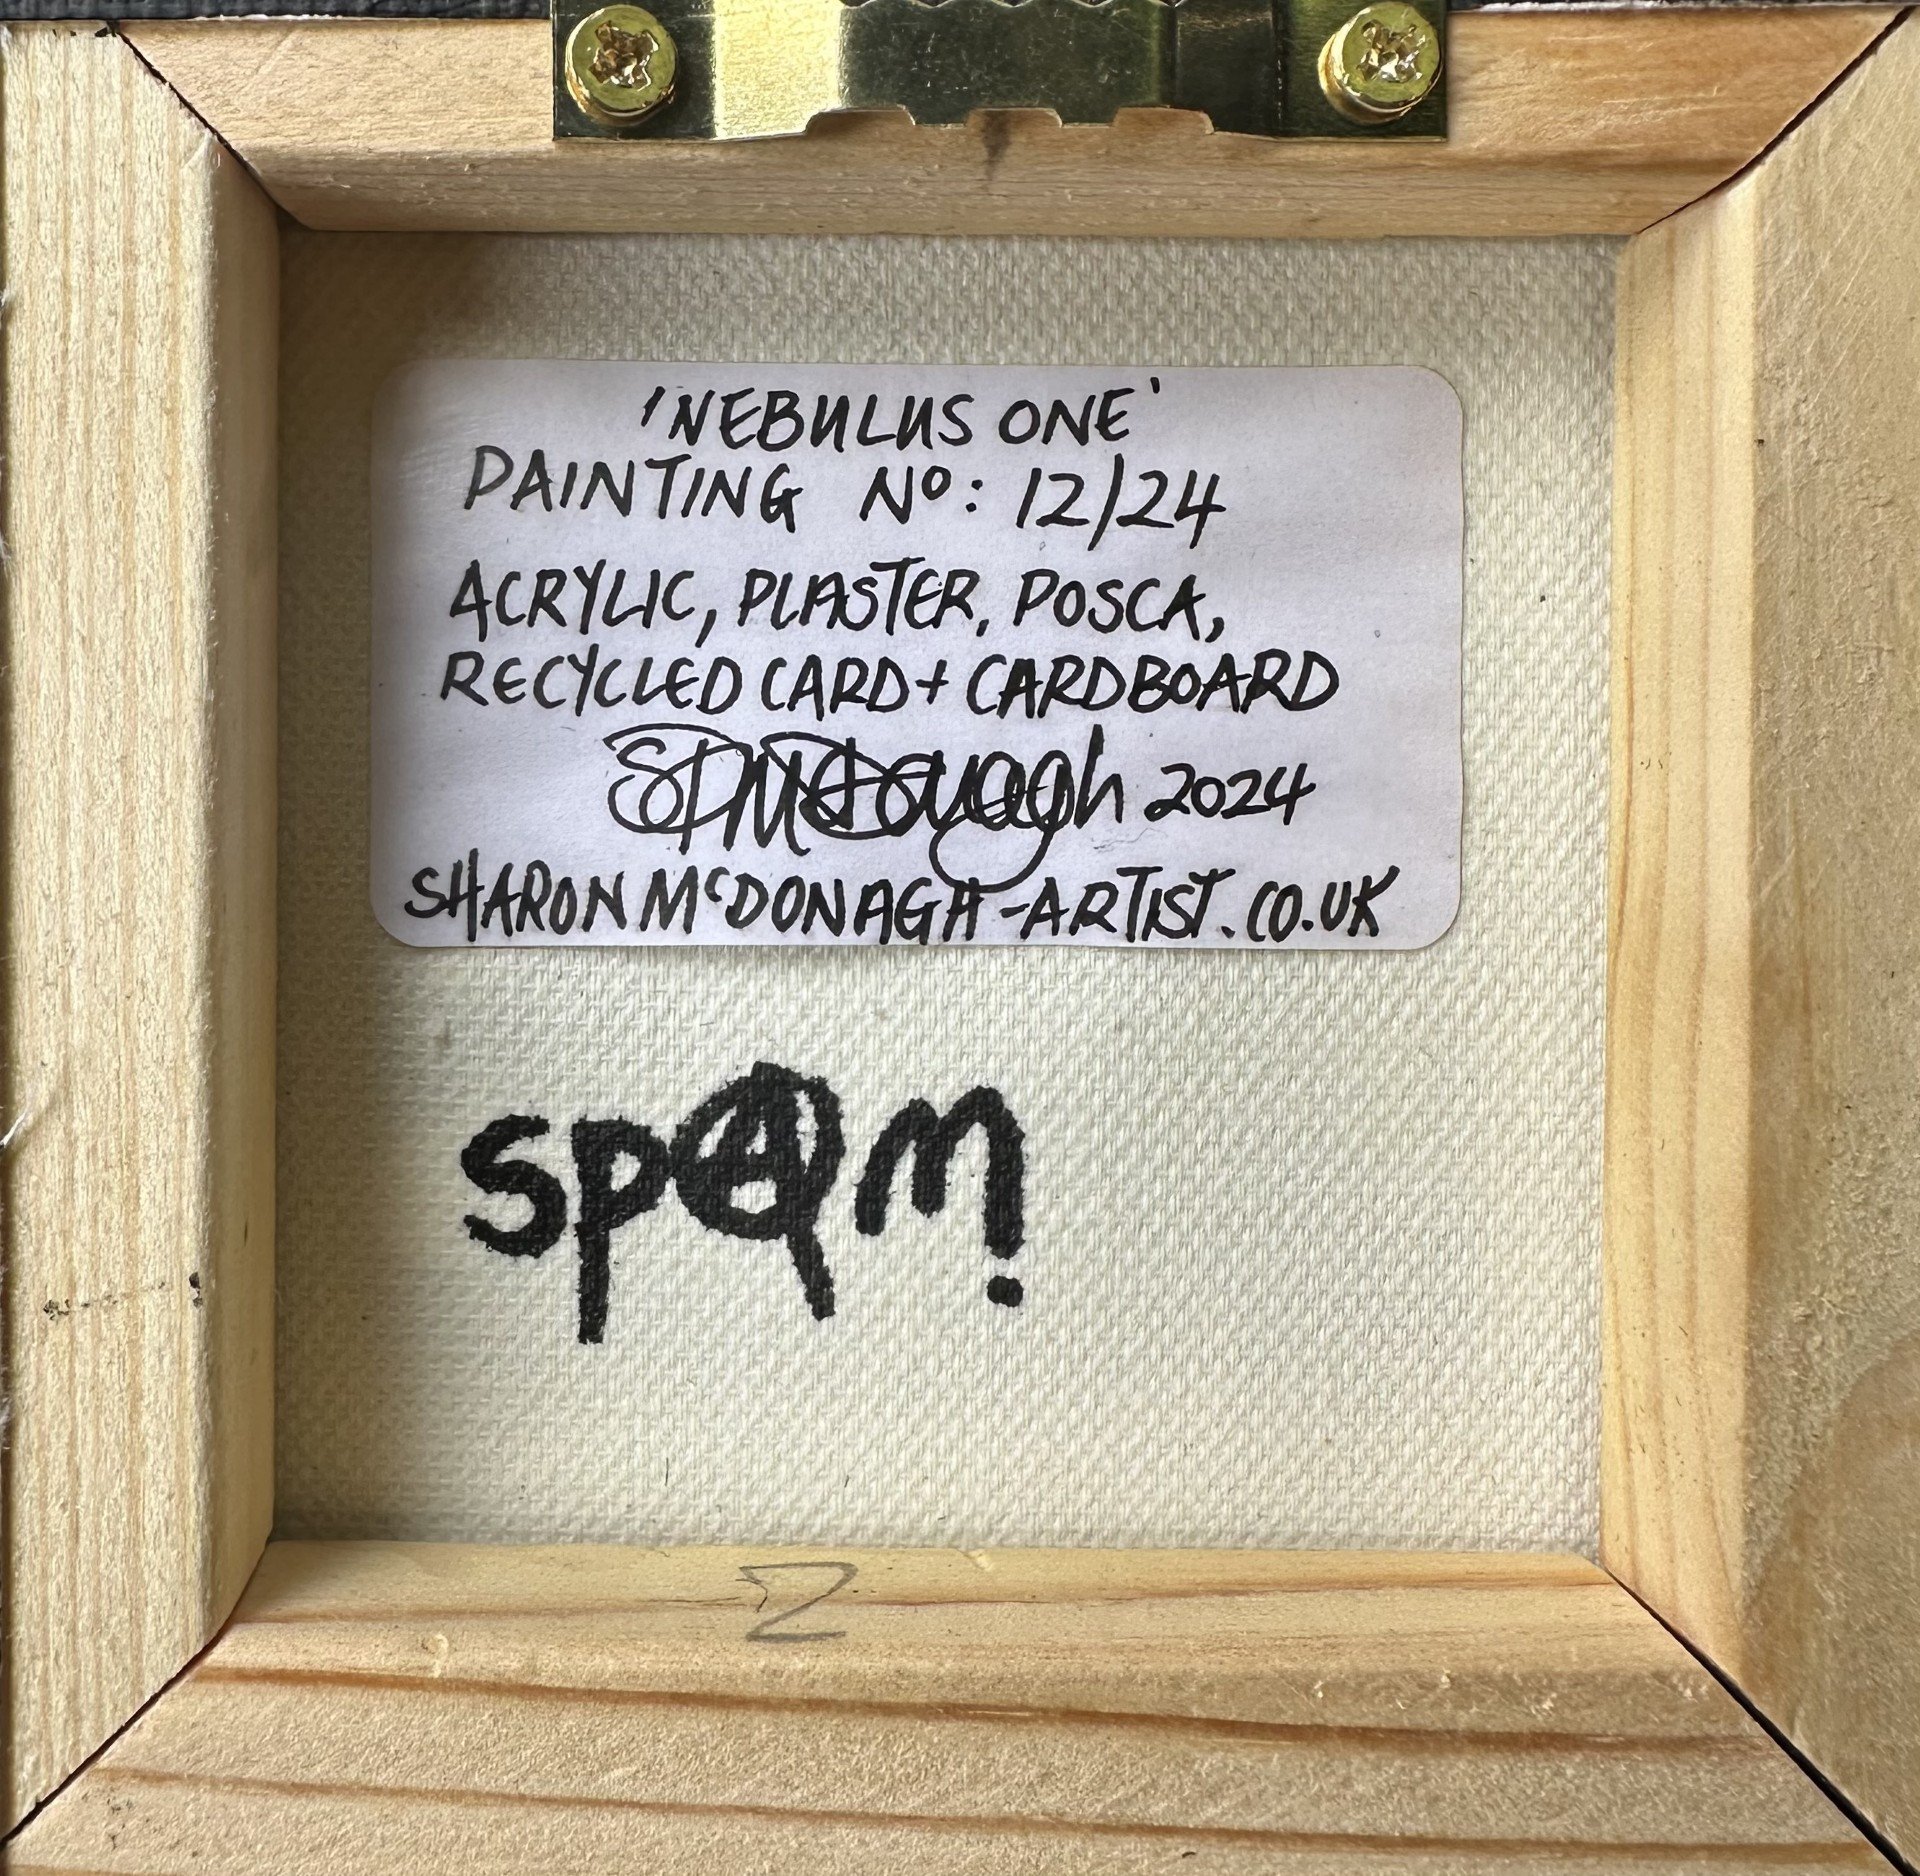 'NEBULUS ONE'
PAINTING Nº: 12/24
ACRYLIC, PLASTER, POSCA,
RECYCLED CARD + CARDBOARD
SPMcDonagh 2024
SHARONMCDONAGH-ARTIST.CO.UK
SPAM!
2